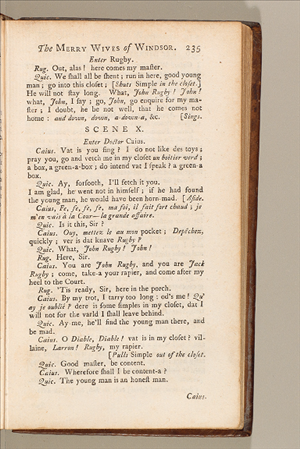 The MERRY WIVES of WINDSOR. 235
Enter Rugby.
Rug. Out, alas! here comes my maſter.
Quic. We ſhall all be ſhent; run in here, good young
man; go into this cloſet; [Shuts Simple in the cloſet.]
He will not ſtay long. What, John Rugby! John!
what, John, I ſay; go, John, go enquire for my ma-
ſter; I doubt, he be not well, that he comes not
home: and down, down, a-down-a, &c. [Sings.
SCENE X.
Enter Doctor Caius.
Caius. Vat is you ſing? I do not like des toys;
pray you, go and vetch me in my cloſet un boitier verd;
a box, a green-a-box; do intend vat I ſpeak? a green-a
box.
Quic. Ay, forſooth, I'll fetch it you.
I am glad, he went not in himſelf; if he had found
the young man, he would have been horn-mad. [Aſide.
Caius. Fe, fe, fe, fe, ma foi, il fait fort chaud; je
m'en vais à la Cour—la grande affaire.
Quic. Is it this, Sir?
Caius. Ouy, mettez le au mon pocket; Depêchez,
quickly; ver is dat knave Rugby?
Quic. What, John Rugby! John!
Rug. Here, Sir.
Caius. You are John Rugby, and you are Jack
Rugby; come, take-a your rapier, and come after my
heel to the Court.
Rug. 'Tis ready, Sir, here in the porch.
Caius. By my trot, I tarry too long: od's me! Qu'
ay je oublié? dere is ſome ſimples in my cloſet, dat I
will not for the varld I ſhall leave behind.
Quic. Ay me, he'll find the young man there, and
be mad.
Caius. O Diable, Diable! vat is in my cloſet? vil-
laine, Larron! Rugby, my rapier.
[Pulls Simple out of the cloſet.
Quic. Good maſter, be content.
Caius. Wherefore ſhall I be content-a?
Quic. The young man is an honeſt man.
Caius.